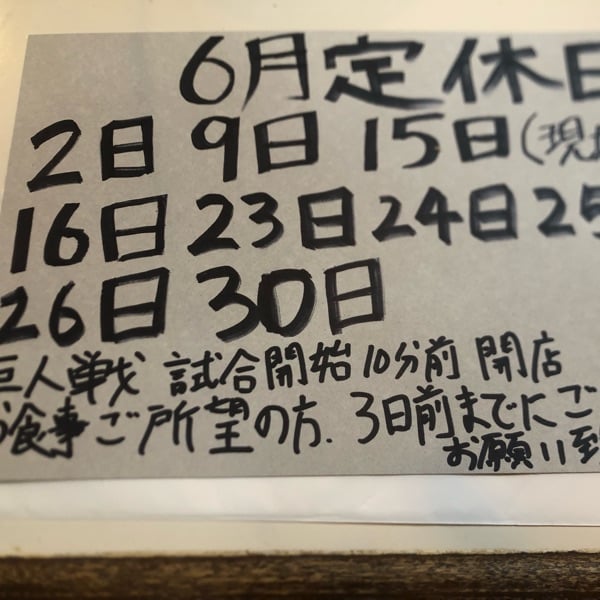 6月定休日
2日 9日 15日(現地
16日 23日 24日 25
26日 30日
巨人戦 試合開始10分前 開店
お食事ご所望の方. 3日前までにご
お願い致